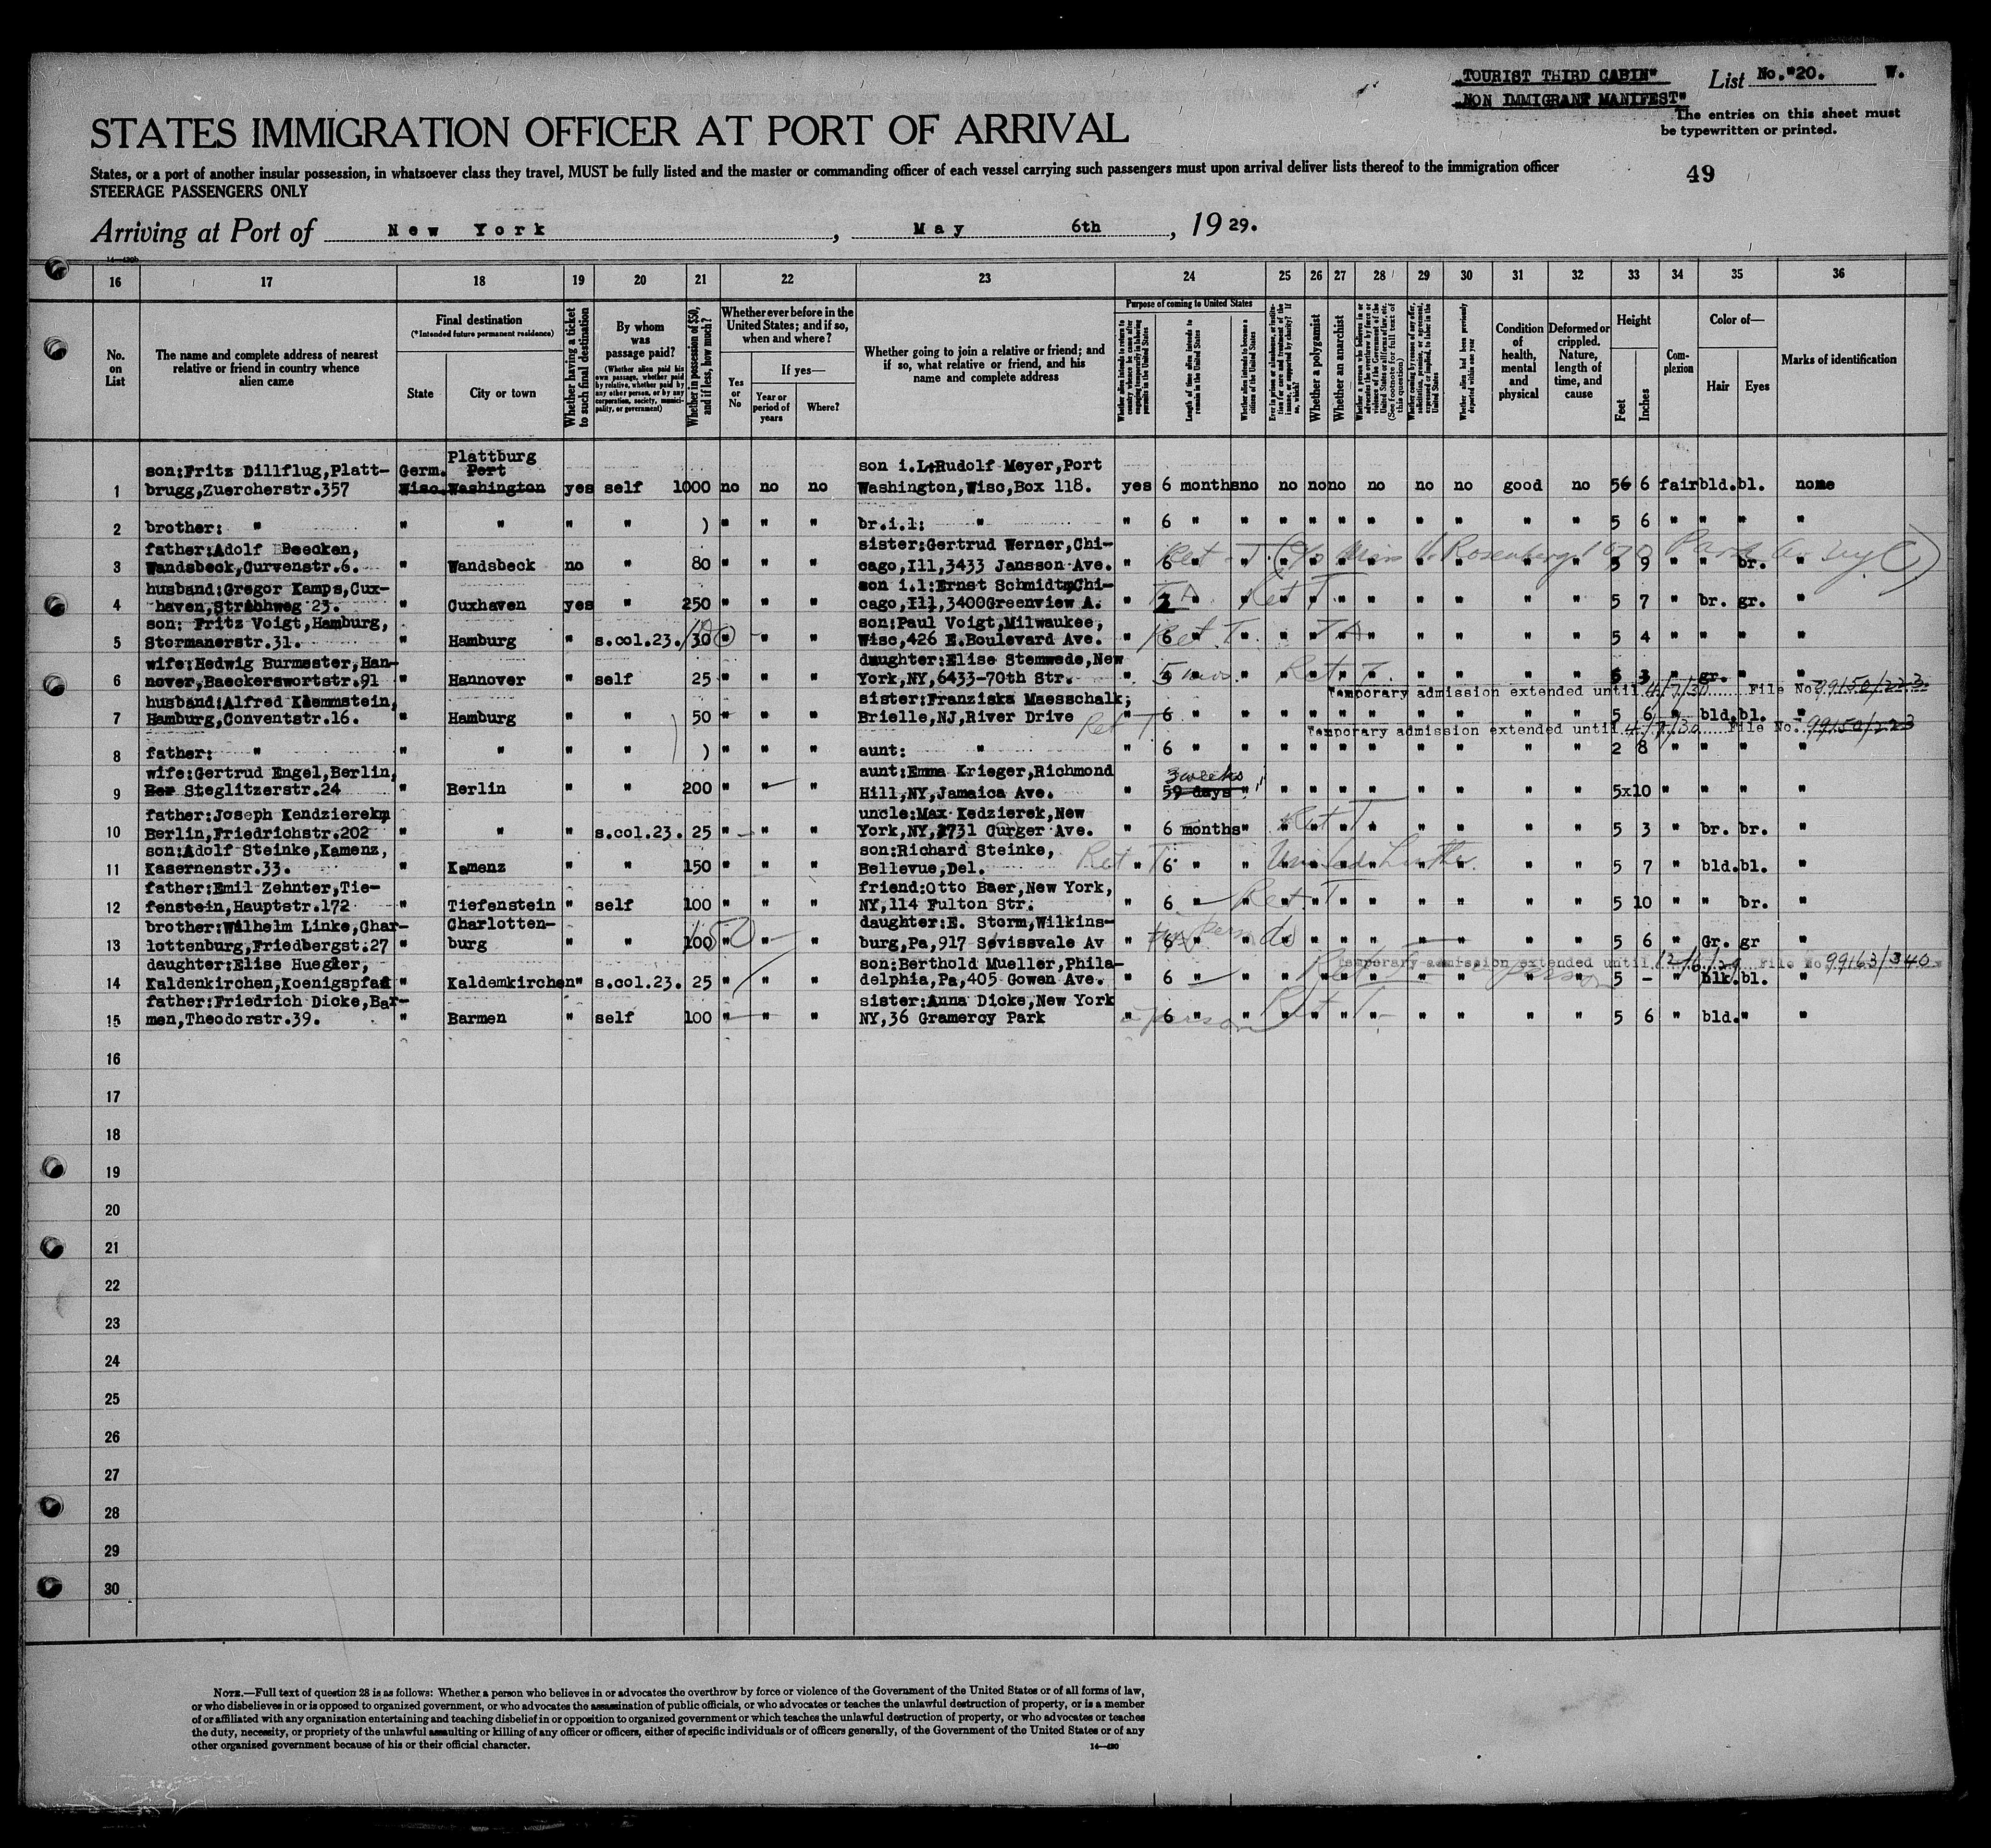 "TOURIST THIRD CABIN" List No."20. W.
"NON IMMIGRANT MANIFEST"
The entries on this sheet must
be typewritten or printed.
STATES IMMIGRATION OFFICER AT PORT OF ARRIVAL
States, or a port of another insular possession, in whatsoever class they travel, MUST be fully listed and the master or commanding officer of each vessel carrying such passengers must upon arrival deliver lists thereof to the immigration officer
STEERAGE PASSENGERS ONLY
49
Arriving at Port of New York, May 6th, 1929.
14—430b
16 17 18 19 20 21 22 23 24 25 26 27 28 29 30 31 32 33 34 35 36
No. on List
The name and complete address of nearest relative or friend in country whence alien came
Final destination
(*Intended future permanent residence)
State
City or town
Whether having a ticket to such final destination
By whom was passage paid?
(Whether alien paid his own passage, whether paid by relative, whether paid by any other person, or by any corporation, society, municipality, or government)
Whether in possession of $50, and if less, how much?
Whether ever before in the United States; and if so, when and where?
Yes or No
If yes—
Year or period of years
Where?
Whether going to join a relative or friend; and if so, what relative or friend, and his name and complete address
Purpose of coming to United States
Length of time alien intends to remain in the United States
Whether alien intends to become a citizen of the United States
Whether a polygamist
Whether an anarchist
Condition of health, mental and physical
Deformed or crippled. Nature, length of time, and cause
Height
Feet
Inches
Complexion
Color of—
Hair
Eyes
Marks of identification
Plattburg
son:Fritz Dillflug,Platt- Germ. Port son i.L:Rudolf Meyer,Port
1 brugg,Zuercherstr.357 Wisc. Washington yes self 1000 no no no Washington,Wisc,Box 118. yes 6 months no no no no no no no good no 5 6 6 fair bld. bl. none
2 brother: " " " " " ) " " " br.i.l: " " 6 " " " " " " " " " " 5 6 " " " "
father:Adolf Beecken, sister:Gertrud Werner,Chi-
3 Wandsbeck,Curvenstr.6. " Wandsbeck no " 80 " " " cago,Ill,3433 Jansson Ave. " 6 " " " " " " " " " " 5 9 " " br. "
Ret T. (c/o Miss V. Rosenberg 1070 Park Av NyC)
husband:Gregor Kamps,Cux- son i.l:Ernst Schmidt,Chi-
4 haven,Strichweg 23. " Cuxhaven yes " 250 " " " cago,Ill,3400Greenview A. " 3 " " " " " " " " " 5 7 " br. gr. "
Ret T.
son: Fritz Voigt,Hamburg, son:Paul Voigt,Milwaukee,
5 Stormanerstr.31. " Hamburg " s.col.23. 30 " " " Wisc,426 E.Boulevard Ave. " 6 " " " " " " " " " " 5 4 " " " "
Ret. T.
wife:Hedwig Burmester,Han- daughter:Elise Stemwede,New
6 nover,Baeckerswortstr.91 " Hannover " self 25 " " " York,NY,6433-70th Str. " 5 mos. " " " " " " " " " 6 3 " gr. " "
Ret T.
Temporary admission extended until 4/7/30 File No. 99150/223.
husband:Alfred Klemmstein, sister:Franziska Maesschalk;
7 Hamburg,Conventstr.16. " Hamburg " " 50 " " " Brielle,NJ,River Drive " 6 " " " " " " " " " " 5 6 " bld. bl. "
Ret T.
Temporary admission extended until 4/7/30 File No. 99150/223
8 father: " " " " " ) " " " aunt: " " 6 " " " " " " " " " " 2 8 " " " "
wife:Gertrud Engel,Berlin, aunt:Emma Krieger,Richmond 3 weeks
9 Ber Steglitzerstr.24 " Berlin " " 200 " " " Hill,NY,Jamaica Ave. " 59 days " " " " " " " " " 5x10 " " " "
father:Joseph Kendzierek, uncle:Max Kedzierek,New
10 Berlin,Friedrichstr.202 " " " s.col.23. 25 " " " York,NY,2731 Gurger Ave. " 6 months " " " " " " " " " 5 3 " br. br. "
Ret T.
son:Adolf Steinke,Kamenz, son:Richard Steinke,
11 Kasernenstr.33. " Kamenz " " 150 " " " Bellevue,Del. " 6 " " " " " " " " " " 5 7 " bld. bl. "
Ret T.
father:Emil Zehnter,Tie- friend:Otto Baer,New York,
12 fenstein,Hauptstr.172 " Tiefenstein " self 100 " " " NY,114 Fulton Str. " 6 " " " " " " " " " " 5 10 " " br. "
Ret. T.
brother:Wilhelm Linke,Char- Charlotten- daughter:E. Storm,Wilkins-
13 lottenburg,Friedbergst.27 " burg " " 100 " " " burg,Pa,917 Sevissvale Av " 6 " " " " " " " " " " 5 6 " Gr. gr "
Temporary admission extended until 12/6/29 File No. 99163/340
daughter:Elise Huegler, son:Berthold Mueller,Phila-
14 Kaldenkirchen,Koenigspfad " Kaldemkirchen " s.col.23. 25 " " " delphia,Pa,405 Gowen Ave. " 6 " " " " " " " " " " 5 - " blk. bl. "
father:Friedrich Dicke,Bar- sister:Anna Dicke,New York
15 men,Theodorstr.39. " Barmen " self 100 " " " NY,36 Gramercy Park " 6 " " " " " " " " " " 5 6 " bld. " "
Ret T.
16
17
18
19
20
21
22
23
24
25
26
27
28
29
30
NOTE.—Full text of question 28 is as follows: Whether a person who believes in or advocates the overthrow by force or violence of the Government of the United States or of all forms of law,
or who disbelieves in or is opposed to organized government, or who advocates the assassination of public officials, or who advocates or teaches the unlawful destruction of property, or is a member
of or affiliated with any organization entertaining and teaching disbelief in or opposition to organized government or which teaches the unlawful destruction of property, or who advocates or teaches
the duty, necessity, or propriety of the unlawful assaulting or killing of any officer or officers, either of specific individuals or of officers generally, of the Government of the United States or of any
other organized government because of his or their official character.
14—430